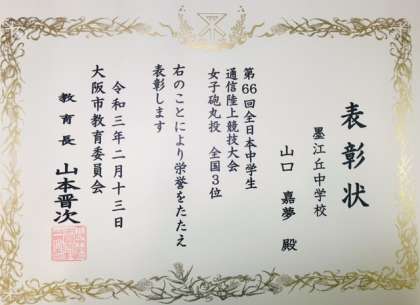 表彰状
墨江丘中学校
山口 嘉夢 殿
第66回全日本中学生
通信陸上競技大会
女子砲丸投 全国3位
右のことにより栄誉をたたえ
表彰します
令和三年二月十三日
大阪市教育委員会
教育長 山本晋次